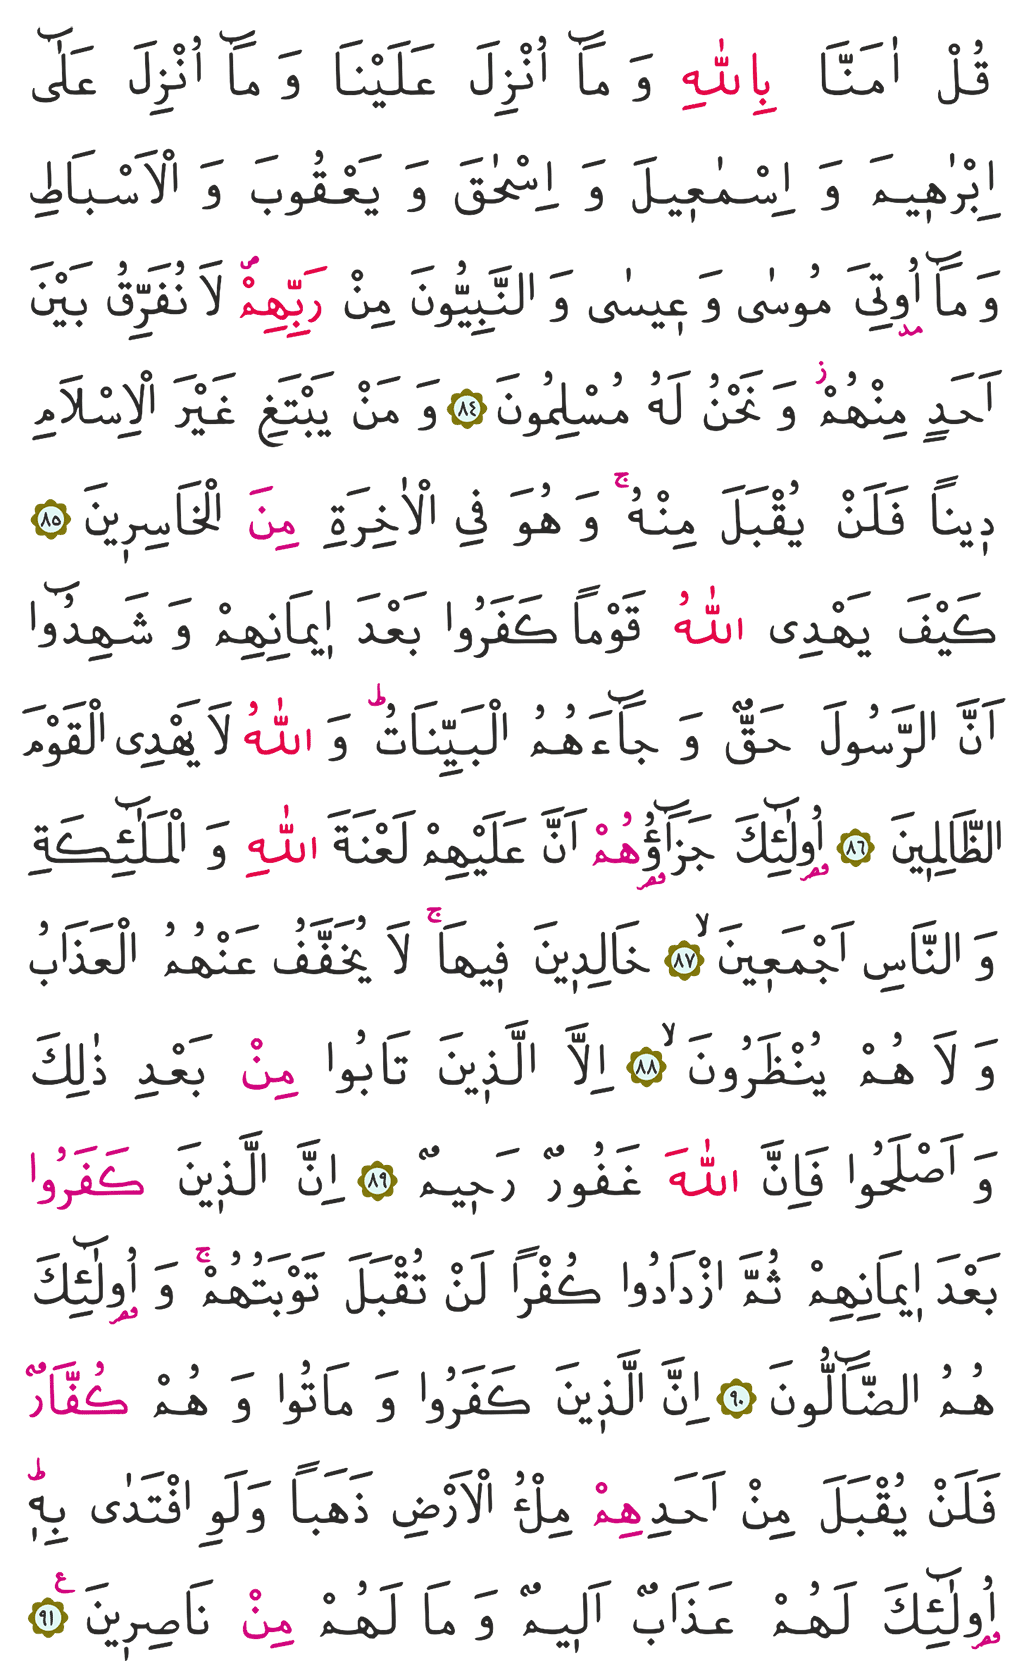 قُلْ اٰمَنَّا بِاللّٰهِ وَ مَآ اُنْزِلَ عَلَيْنَا وَ مَآ اُنْزِلَ عَلٰٓى
اِبْرٰه۪يمَ وَ اِسْمٰع۪يلَ وَ اِسْحٰقَ وَ يَعْقُوبَ وَ الْاَسْبَاطِ
وَ مَآ اُو۫تِيَ مُوسٰى وَ ع۪يسٰى وَ النَّبِيُّونَ مِنْ رَبِّهِمْۖ لَا نُفَرِّقُ بَيْنَ
اَحَدٍ مِنْهُمْۘ وَ نَحْنُ لَهُ مُسْلِمُونَ ﴿٨٤﴾ وَ مَنْ يَبْتَغِ غَيْرَ الْاِسْلَامِ
د۪يناً فَلَنْ يُقْبَلَ مِنْهُۚ وَ هُوَ فِي الْاٰخِرَةِ مِنَ الْخَاسِر۪ينَ ﴿٨٥﴾
كَيْفَ يَهْدِى اللّٰهُ قَوْماً كَفَرُوا بَعْدَ ا۪يمَانِهِمْ وَ شَهِدُٓوا
اَنَّ الرَّسُولَ حَقٌّ وَ جَٓاءَهُمُ الْبَيِّنَاتُؕ وَ اللّٰهُ لَا يَهْدِى الْقَوْمَ
الظَّالِم۪ينَ ﴿٨٦﴾ اُو۬لٰٓئِكَ جَزَٓاؤُ۬هُمْ اَنَّ عَلَيْهِمْ لَعْنَةَ اللّٰهِ وَ الْمَلٰٓئِكَةِ
وَ النَّاسِ اَجْمَع۪ينَۙ ﴿٨٧﴾ خَالِد۪ينَ ف۪يهَاۚ لَا يُخَفَّفُ عَنْهُمُ الْعَذَابُ
وَ لَا هُمْ يُنْظَرُونَۙ ﴿٨٨﴾ اِلَّا الَّذ۪ينَ تَابُوا مِنْ بَعْدِ ذٰلِكَ
وَ اَصْلَحُوا فَاِنَّ اللّٰهَ غَفُورٌ رَح۪يمٌ ﴿٨٩﴾ اِنَّ الَّذ۪ينَ كَفَرُوا
بَعْدَ ا۪يمَانِهِمْ ثُمَّ ازْدَادُوا كُفْراً لَنْ تُقْبَلَ تَوْبَتُهُمْۚ وَ اُو۬لٰٓئِكَ
هُمُ الضَّٓالُّونَ ﴿٩٠﴾ اِنَّ الَّذ۪ينَ كَفَرُوا وَ مَاتُوا وَ هُمْ كُفَّارٌ
فَلَنْ يُقْبَلَ مِنْ اَحَدِهِمْ مِلْءُ الْاَرْضِ ذَهَباً وَلَوِ افْتَدٰى بِه۪ؕ
اُو۬لٰٓئِكَ لَهُمْ عَذَابٌ اَل۪يمٌ وَ مَا لَهُمْ مِنْ نَاصِر۪ينَ ﴿٩١﴾ ع